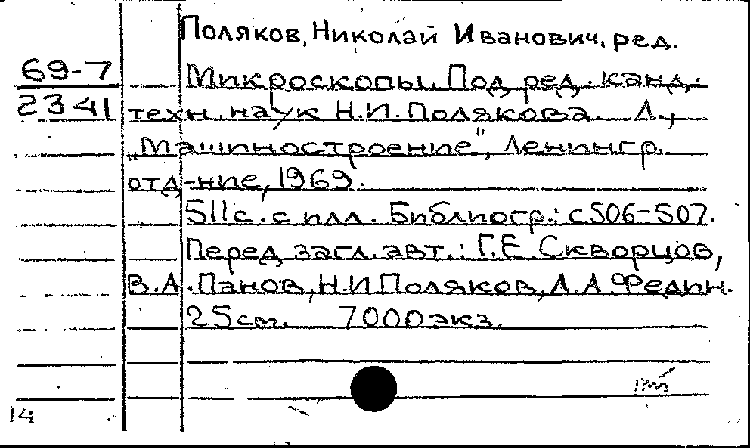 Поляков, Николай Иванович, ред.
69-7 Микроскопы. Под ред. канд.
2341 техн. наук Н.И. Полякова. Л.,
„Машиностроение", Ленингр.
отд-ние, 1969.
511с. с илл. Библиогр.: с506-507.
Перед загл. авт.: Г.Е. Скворцов,
В.А. Панов, Н.И Поляков, Л.А Федин.
25см. 7000экз.
14